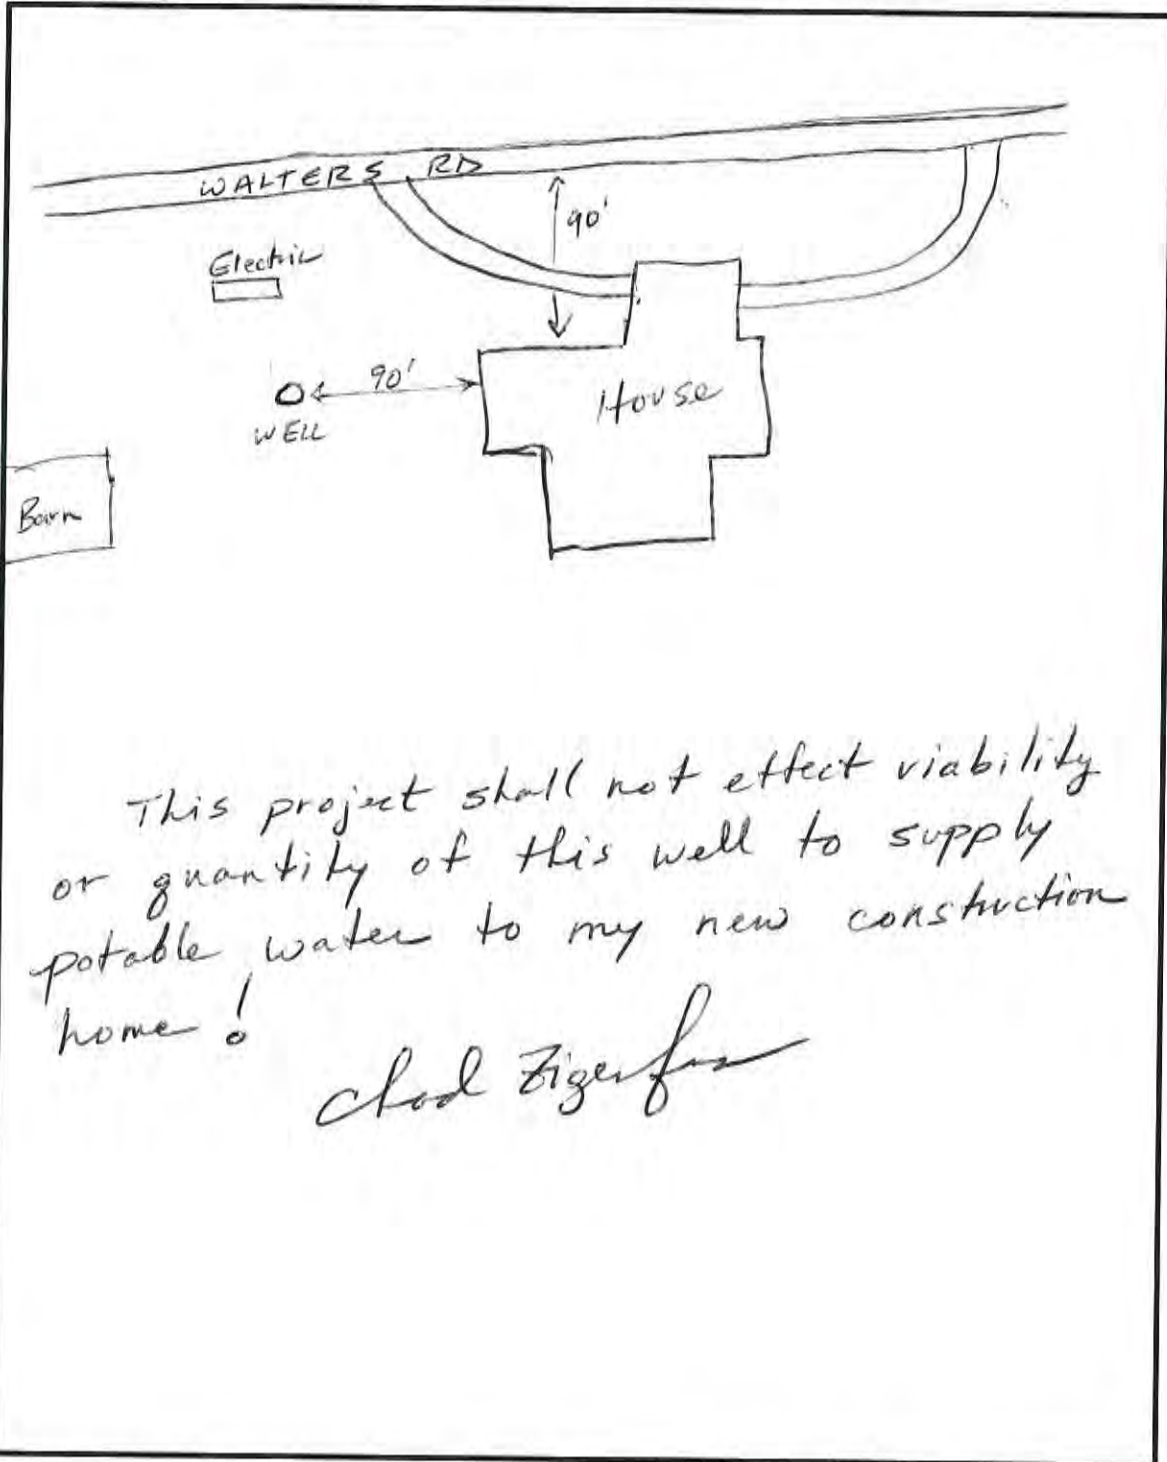 WALTERS RD
90'
Electric
90'
House
WELL
Barn
This project shall not effect viability
or quantity of this well to supply
potable water to my new construction
home!
Chad